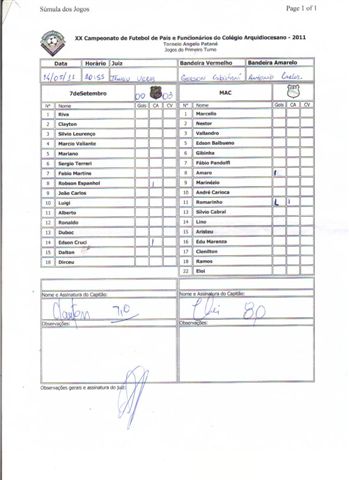 Súmula dos Jogos Page 1 of 1
XX Campeonato de Futebol de Pais e Funcionários do Colégio Arquidiocesano - 2011
Torneio Angelo Patané
Jogos do Primeiro Turno
Data Horário Juiz Bandeira Vermelho Bandeira Amarelo
20:55
7deSetembro 00 03 MAC
Nº Nome Gols CA CV Nº Nome Gols CA CV
1 Riva 1 Marcello
2 Clayton 2 Nestor
3 Silvio Lourenço 3 Vallandro
4 Marcio Valiante 5 Edson Balbueno
5 Mariano 6 Gibinha
6 Sergio Terreri 7 Fábio Pandolfi
7 Fabio Martins 8 Amaro
8 Robson Espanhol 9 Marinézio
9 João Carlos 10 André Carioca
10 Luigi 11 Romarinho
11 Alberto 13 Silvio Cabral
12 Ronaldo 14 Lino
13 Duboc 15 Aristeu
14 Edson Cruci 16 Edu Maranza
15 Dalton 17 Clenilton
18 Dirceu 18 Ramos
22 Eloi
Nome e Assinatura do Capitão: Nome e Assinatura do Capitão:
7,0 8,0
Observações: Observações:
Observações gerais e assinatura do juiz: